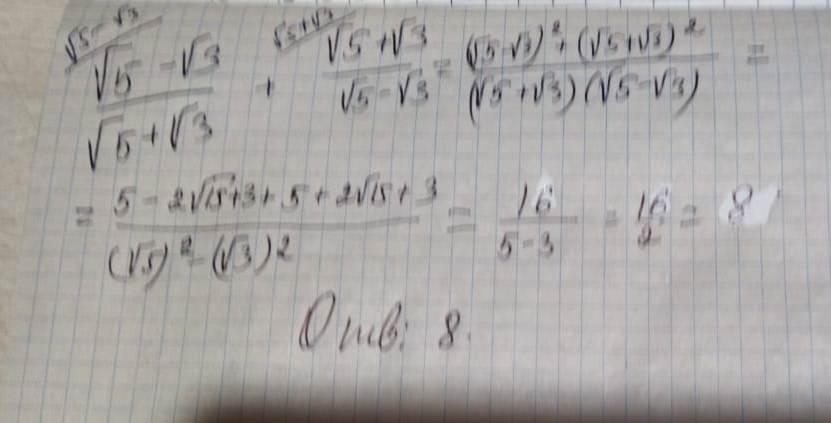 √5-√3 √5+√3
(√5-√3)/(√5+√3) + (√5+√3)/(√5-√3) = ((√5-√3)²+(√5+√3)²)/((√5+√3)(√5-√3)) =
= (5-2√15+3+5+2√15+3)/((√5)²-(√3)²) = 16/(5-3) = 16/2 = 8
Отв: 8.